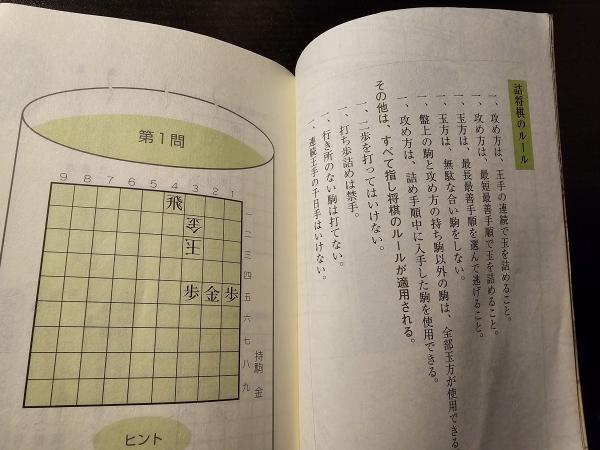 詰将棋のルール
一、攻め方は、王手の連続で玉を詰めること。
一、攻め方は、最短最善手順で玉を詰めること。
一、玉方は、最長最善手順を選んで逃げること。
一、玉方は、無駄な合い駒をしない。
一、盤上の駒と攻め方の持ち駒以外の駒は、全部玉方が使用できる。
一、攻め方は、詰め手順中に入手した駒を使用できる。
その他は、すべて指し将棋のルールが適用される。
一、二歩を打ってはいけない。
一、打ち歩詰めは禁手。
一、行き所のない駒は打てない。
一、連続王手の千日手はいけない。
第1問
9 8 7 6 5 4 3 2 1
飛 一
金 二
玉 三
四
歩 金 歩 五
六
七
八
九
持駒 金
ヒント